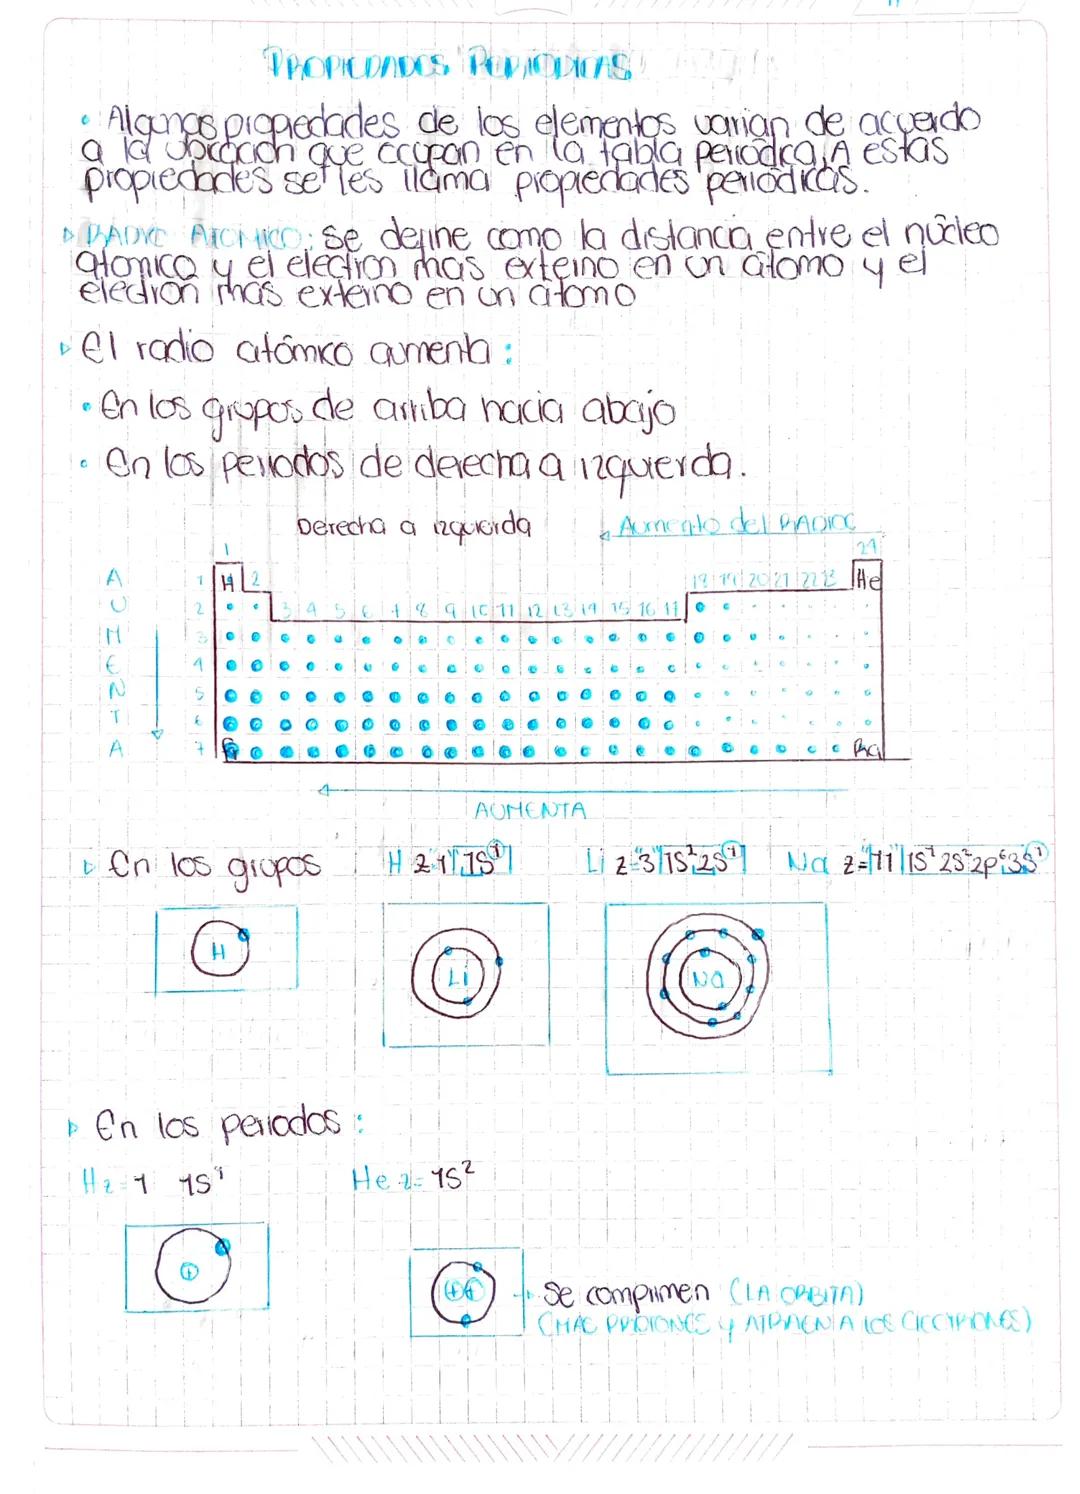 PROPIEDADES PERIÓDICAS
• Algunas propiedades de los elementos varian de acuerdo
a la ubicación que ocupan en la tabla periódica, A estas
propiedades se les llama propiedades periódicas.
RADIO ATOMICO: Se define como la distancia entre el núcleo
atomico y el electron mas externo en un átomo y el
electrón mas externo en un átomo
El radio atómico aumenta:
• En los grupos de arriba hacia abajo
• En los periodos de derecha a izquierda.
Derecha a izquierda
Aumento del RADIO
1
H 2
He
3 4 5 6 7 8 9 10 11 12 13 14 15 16 17
AUMENTA
1
2
3
4
5
6
7
AUMENTA
En los grupos H z=1 1S¹ Li z=3 1S²2S¹ Na z=11 1S² 2S² 2p⁶ 3S¹
H
Li
Na
En los periodos:
H z=1 1S¹ He z= 1S²
+
++
Se comprimen (LA ORBITA)
(MAS PROTONES y ATRAEN A LOS ELECTRONES)